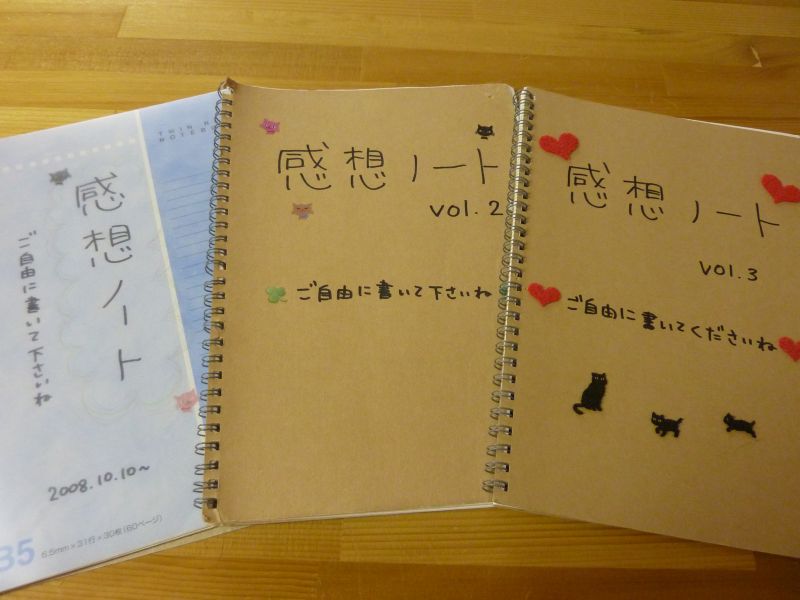 TWIN
NOTEB
感想ノート
ご自由に書いて下さいね
2008.10.10～
B5 6.5mm×31行×30枚(60ページ)
感想ノート
vol.2
ご自由に書いて下さいね
感想ノート
vol.3
ご自由に書いてくださいね